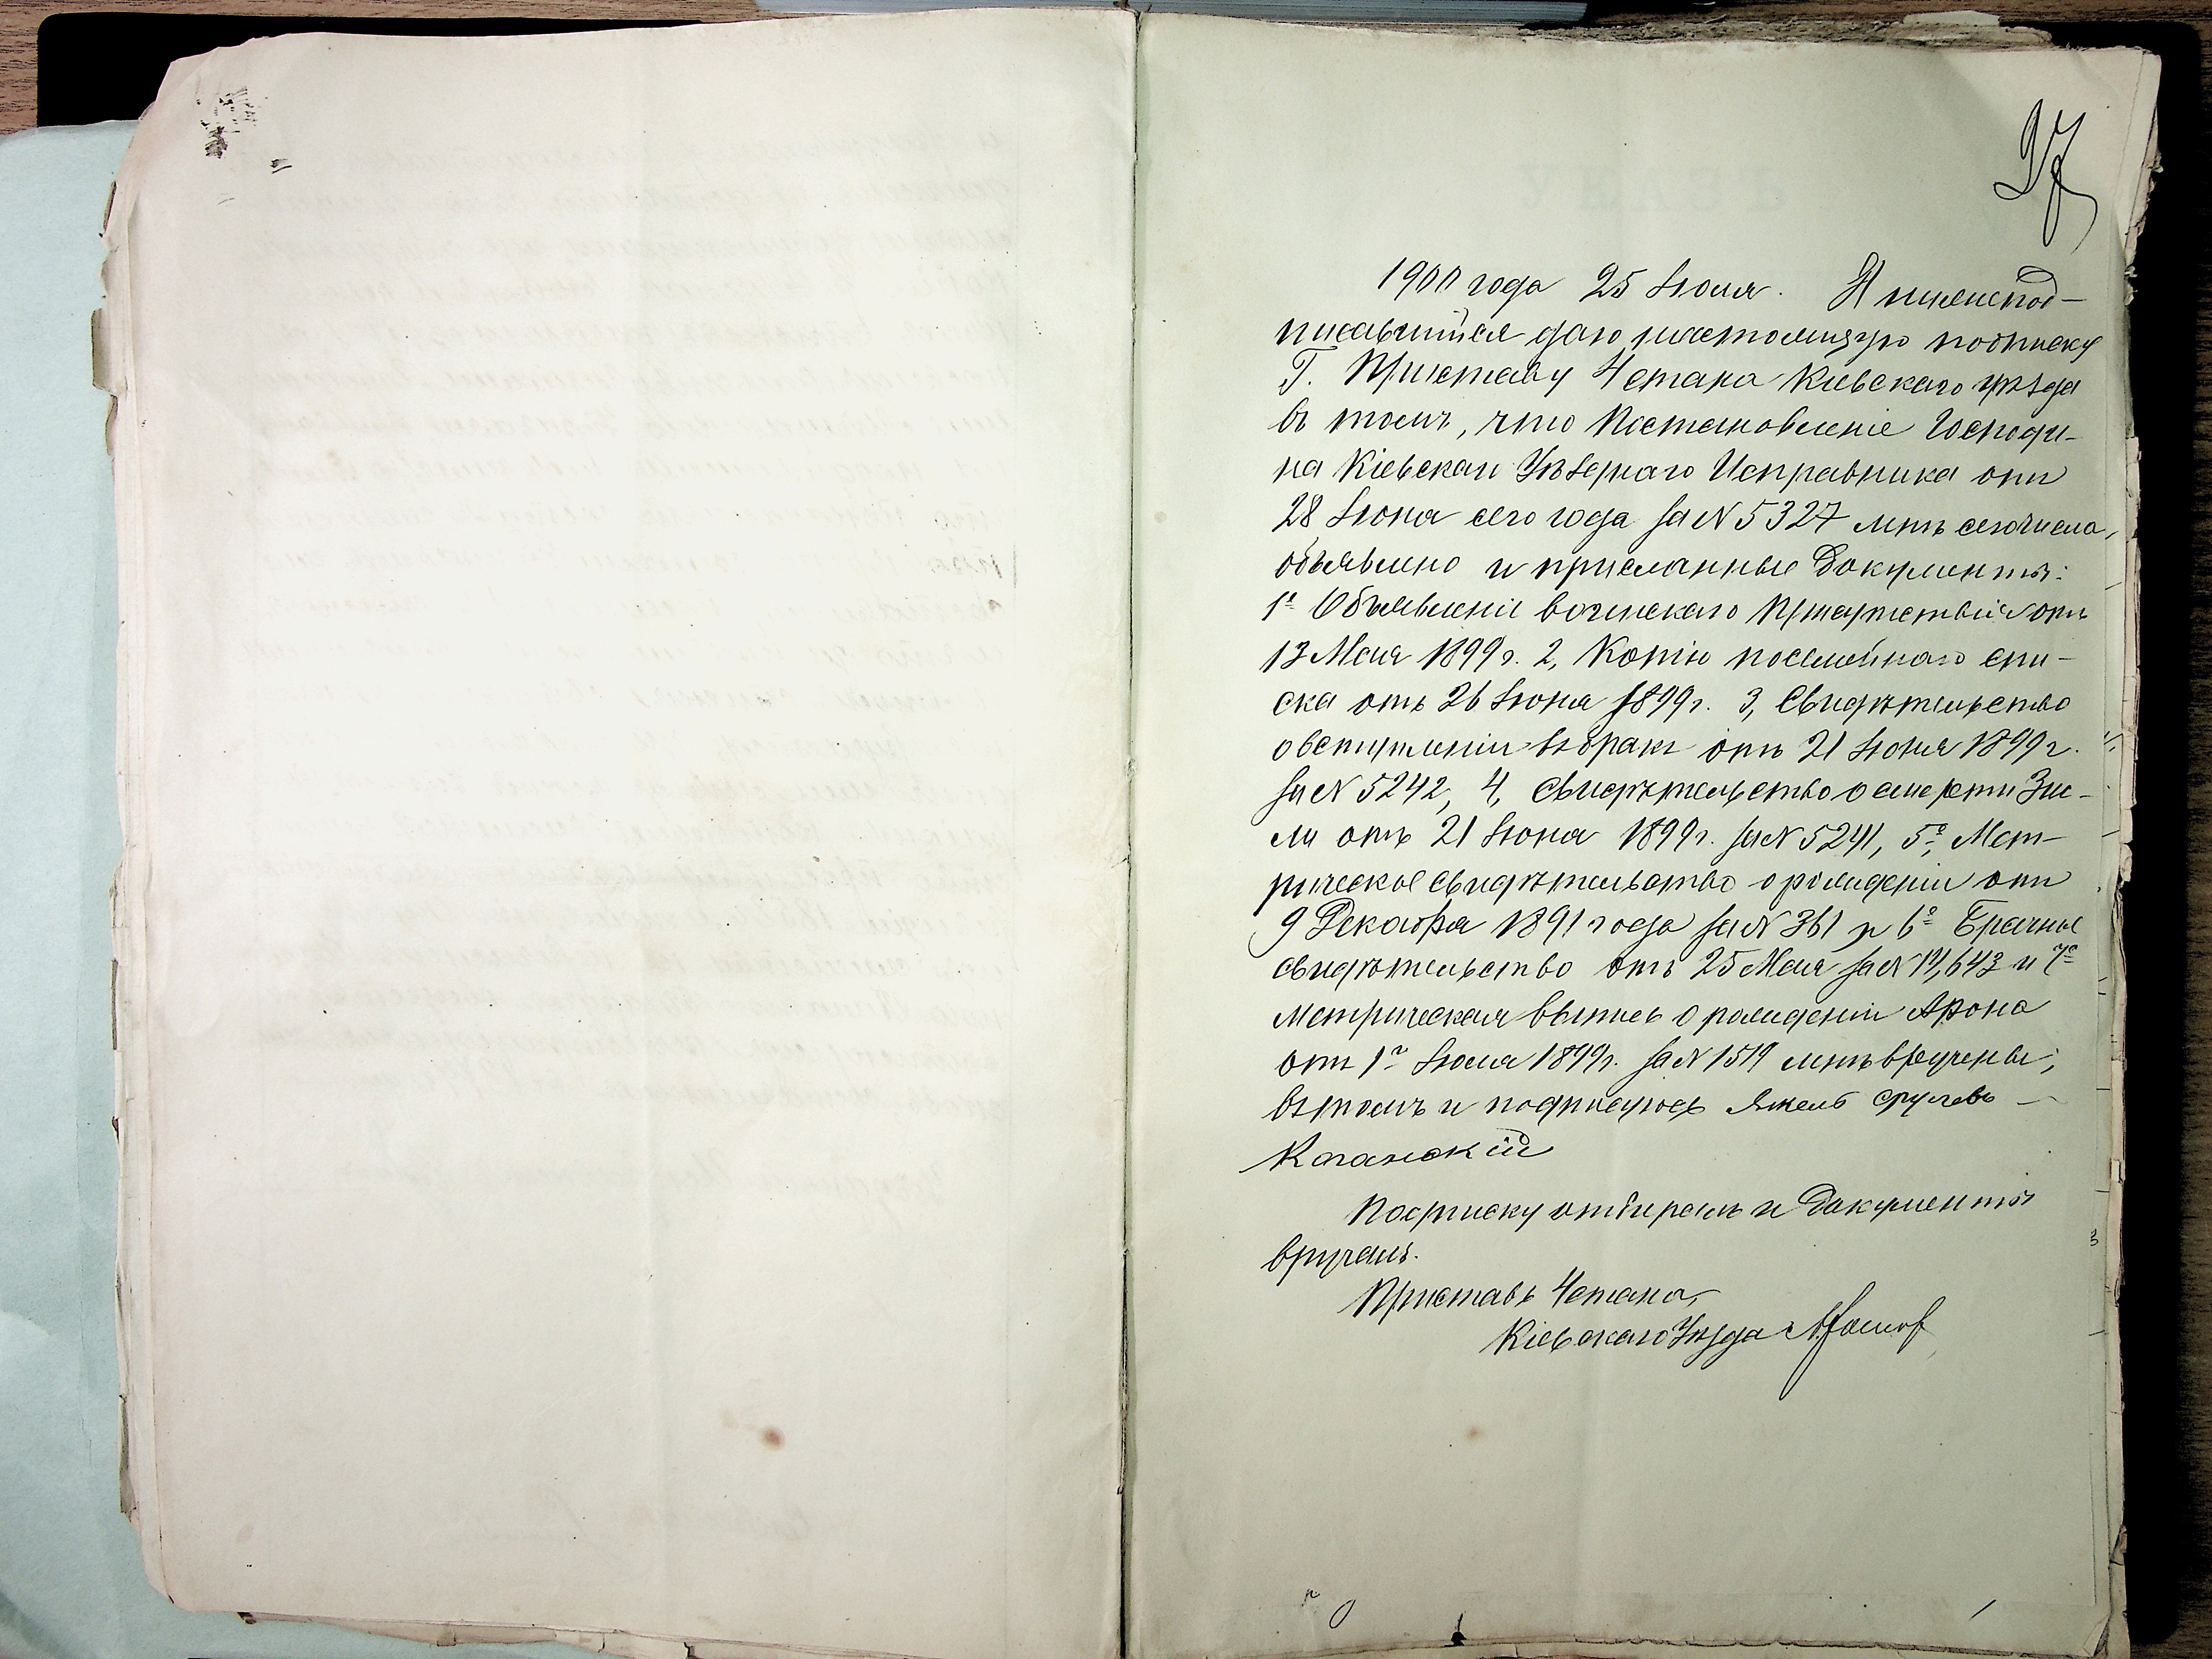 27
1900 года 25 Іюля. Я нижепод-
писавшійся даю настоящую подписку
Г. Приставу 4 стана Кіевскаго уѣзда
въ томъ, что Постановленіе Господи-
на Кіевскаго Уѣзднаго Исправника отъ
28 Іюня сего года за № 5327 мнѣ сегочисла,
объявлено и присланные документы:
1е Объявленіе воинскаго Присутствія отъ
13 Мая 1899 г. 2, Копію посемейнаго спи-
ска отъ 26 Іюня 1899 г. 3, Свидѣтельство
о вступленіи въ бракъ отъ 21 Іюня 1899 г.
за № 5242, 4, Свидѣтельство о смерти Зис-
ли отъ 21 Іюня 1899 г. за № 5241, 5е, Мет-
рическое свидѣтельство о рожденіи отъ
9 Декабря 1891 года за № 361 и 6е Брачное
свидѣтельство отъ 25 Мая за № 12,643 и 7е
Метрическая выпись о рожденіи Арона
отъ 1го Іюля 1899 г. за № 1519 мнѣ вручены;
въ томъ и подписуюсь Срулевъ
Каганскій
Подписку отбиралъ и документы
вручалъ.
Приставъ 4 стана,
Кіевскаго Уѣзда